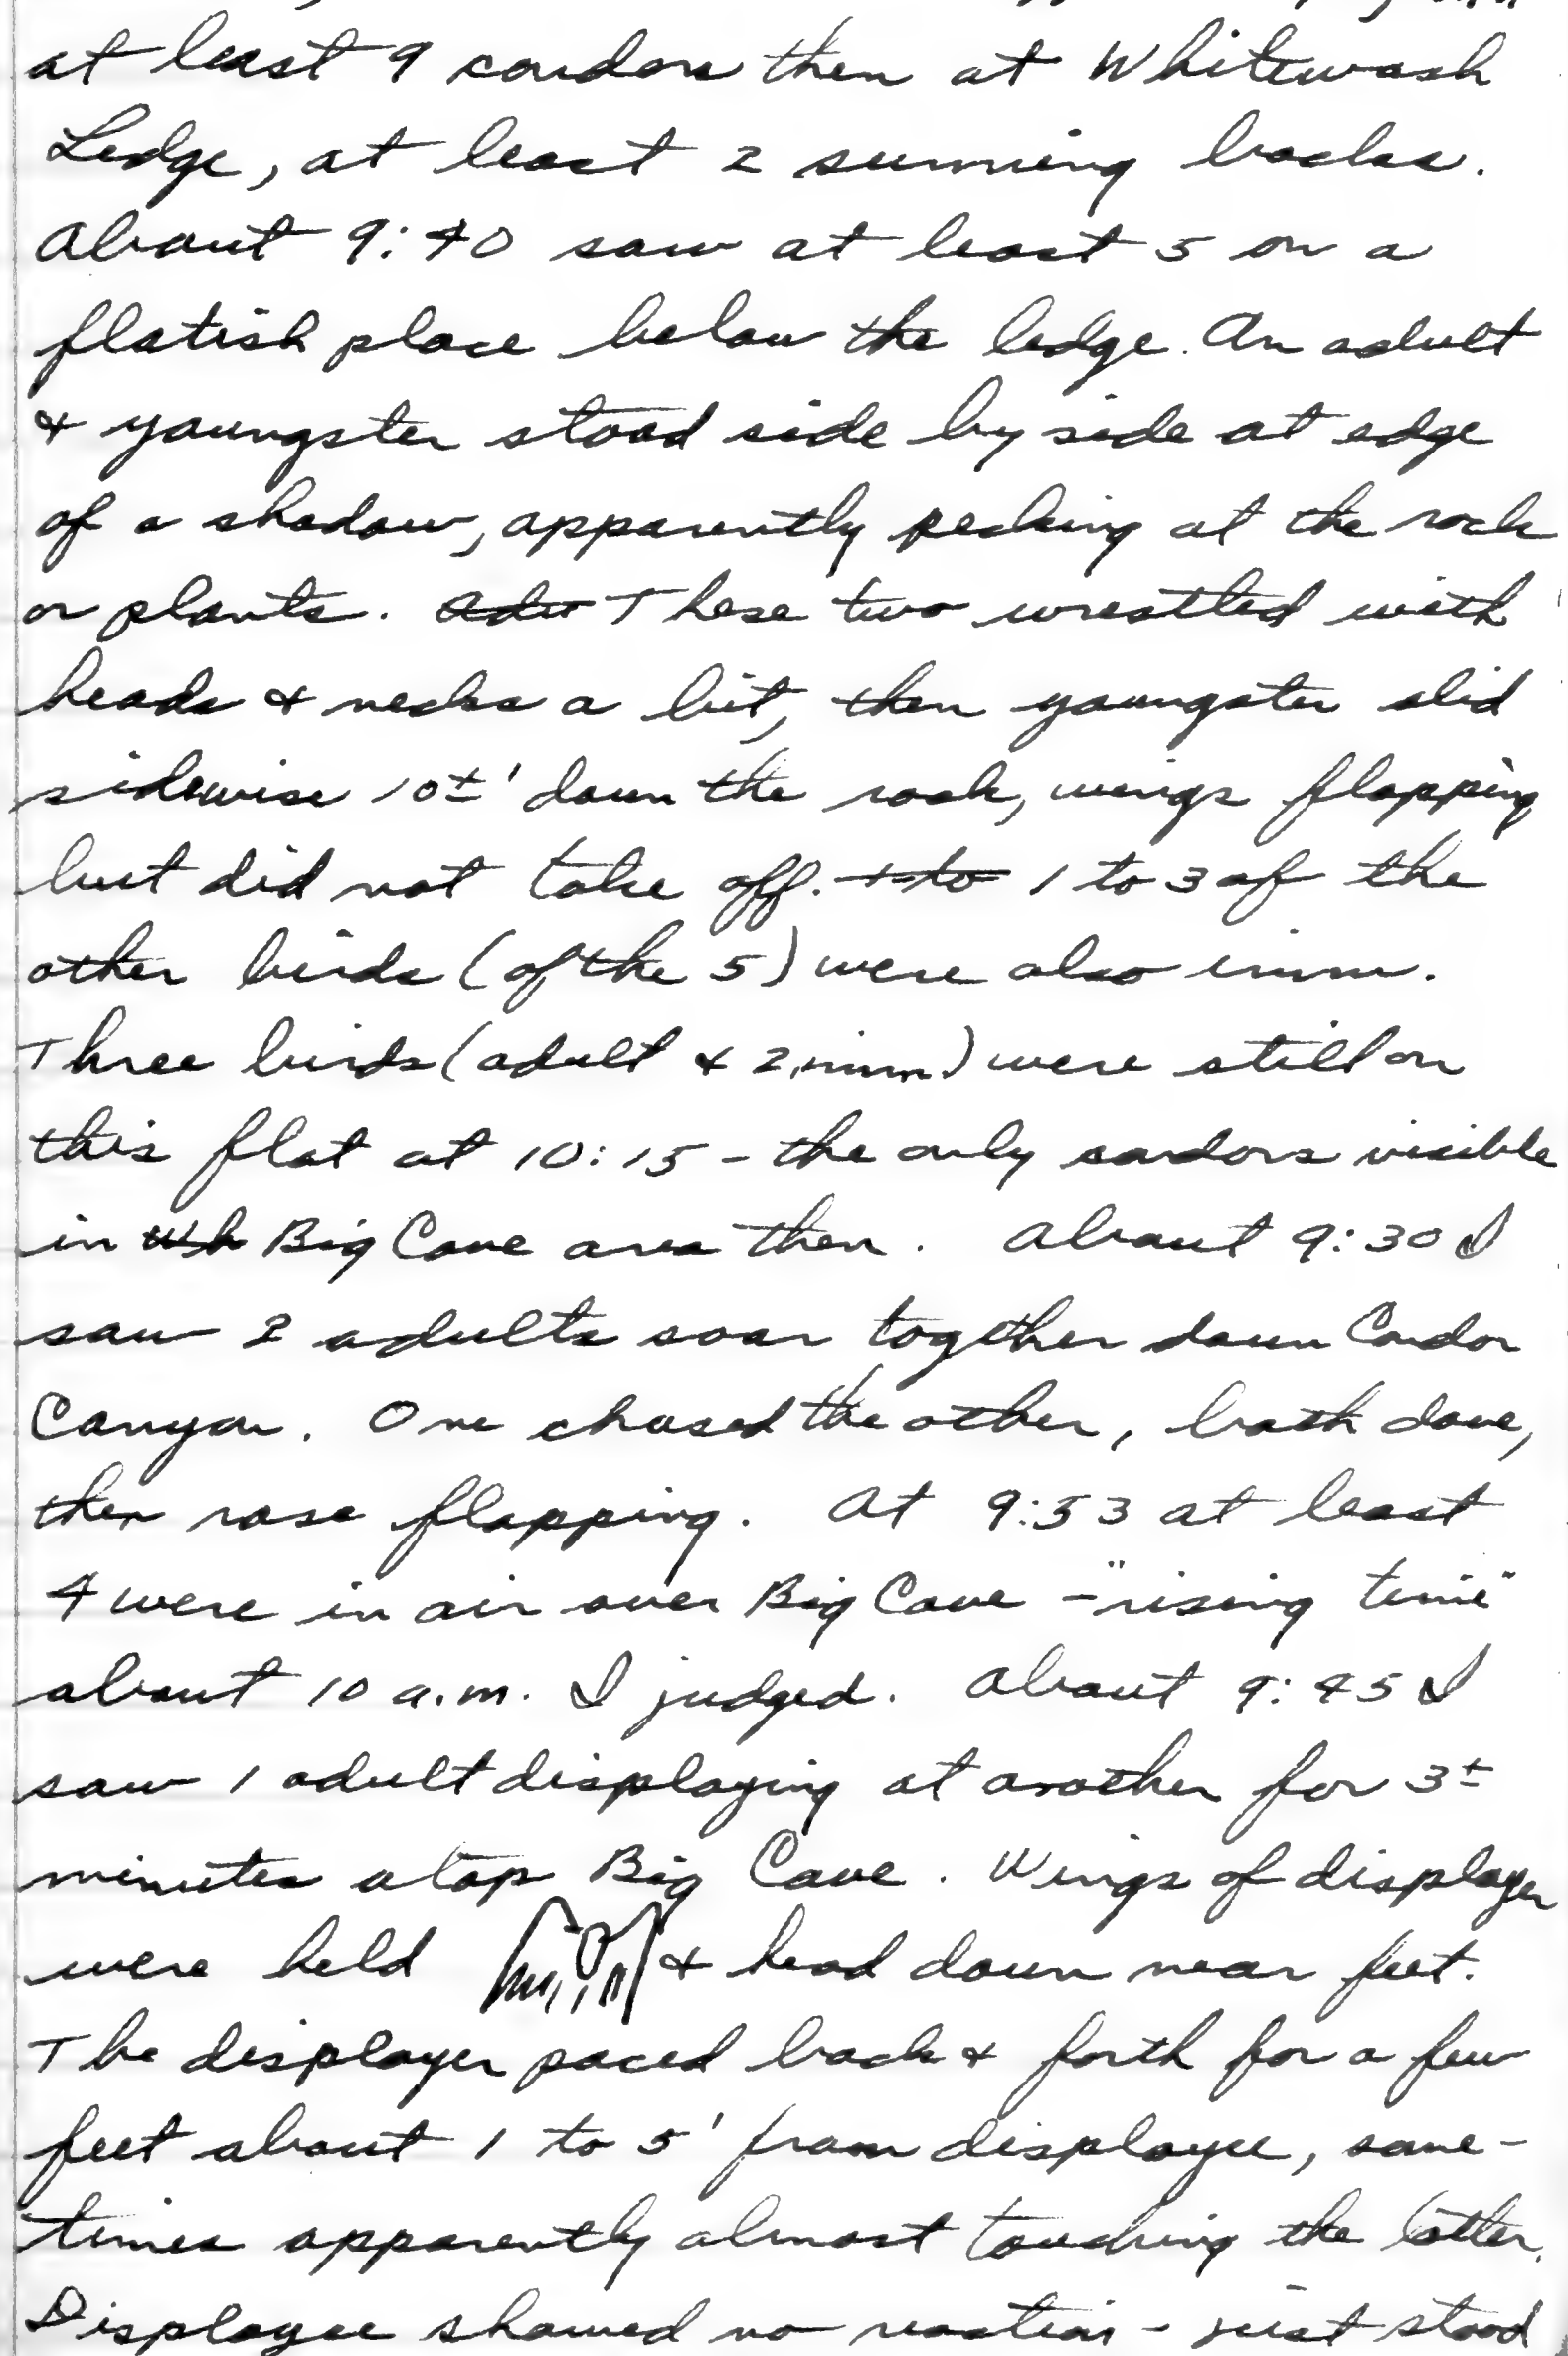 at least 9 condors then at Whitewash
Ledge, at least 2 sunning backs.
About 9:40 saw at least 5 on a
flatish place below the ledge. An adult
& youngster stood side by side at edge
of a shadow, apparently pecking at the rock
or plants. These two wrestled with
heads & necks a bit, then youngster slid
sidewise 10±' down the rock, wings flapping
but did not take off. 1 to 3 of the
other birds (of the 5) were also imm.
Three birds (adult & 2 imm.) were still on
this flat at 10:15 - the only condors visible
in Big Cave area then. About 9:30 I
saw 2 adults soar together down Condor
Canyon. One chased the other, both dove,
then rose flapping. At 9:53 at least
4 were in air over Big Cave - "rising time"
about 10 a.m. I judged. About 9:45 I
saw 1 adult displaying at another for 3±
minutes atop Big Cave. Wings of displayer
were held & head down near feet.
The displayer paced back & forth for a few
feet about 1 to 5' from displayee, some-
times apparently almost touching the latter.
Displayee showed no reaction - just stood